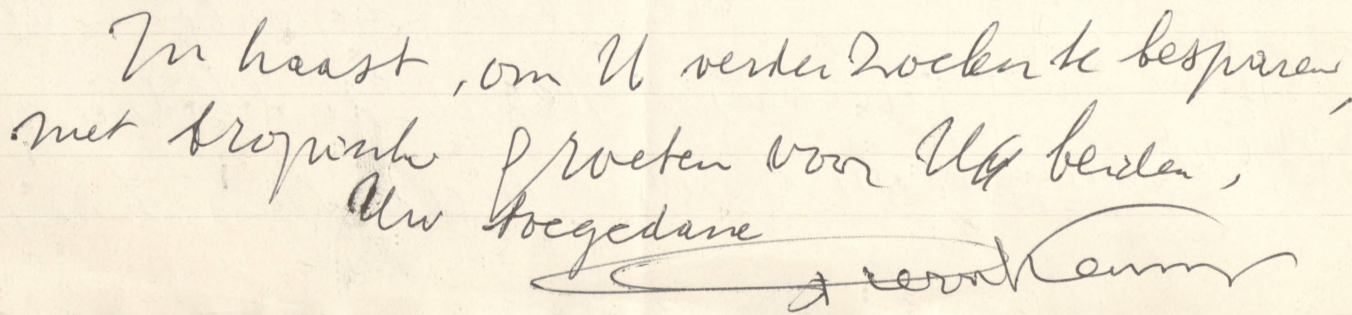 In haast, om U verder zoeken te besparen,
met tropische groeten voor U beiden,
Uw toegedane